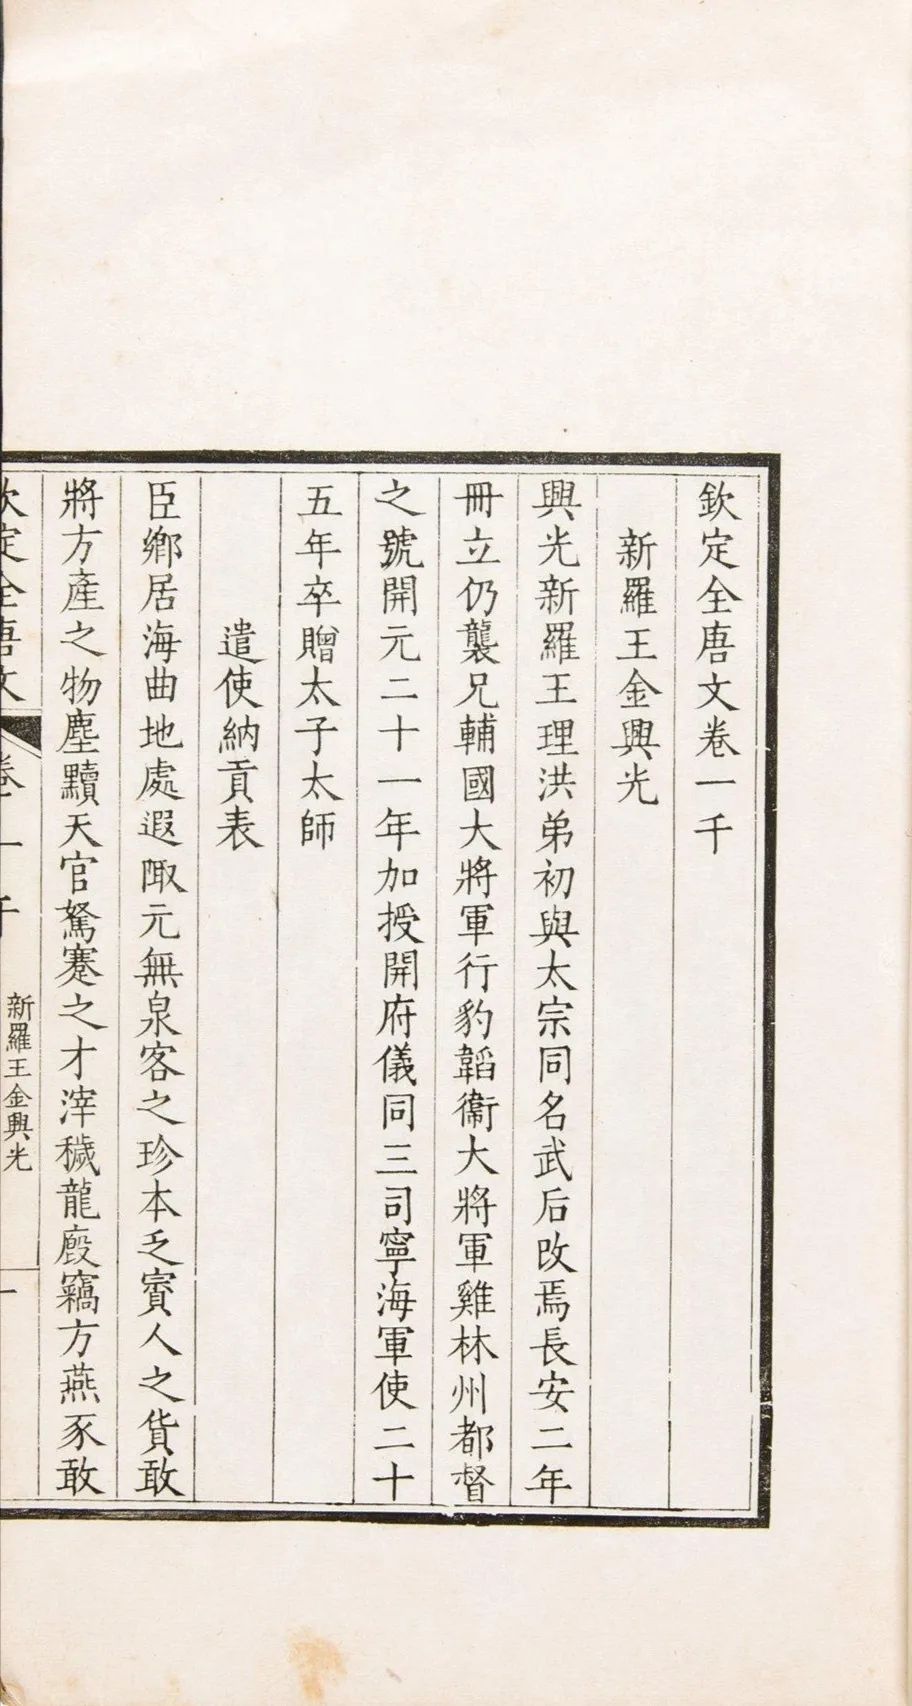 欽定全唐文卷一千
新羅王金興光
興光新羅王理洪弟初與太宗同名武后改焉長安二年
冊立仍襲兄輔國大將軍行豹韜衞大將軍雞林州都督
之號開元二十一年加授開府儀同三司寧海軍使二十
五年卒贈太子太師
遣使納貢表
臣鄉居海曲地處遐陬元無泉客之珍本乏賨人之貨敢
將方產之物塵黷天官駑蹇之才滓穢龍廄竊方燕豕敢
欽定全唐文
卷一千
新羅王金興光
一